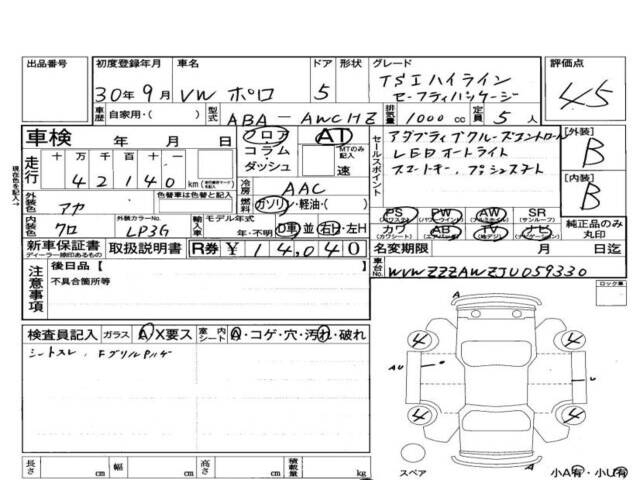 出品番号 初度登録年月 車名 ドア 形状 グレード 評価点
30年9月 VW ポロ 5 TSIハイライン セーフティパッケージ 4.5
車歴 自家用・( ) 型式 ABA-AWCHZ 排気量 1000 cc 定員 5 人
車検 年 月 日 フロア AT
コラム
ダッシュ MTのみ記入 速
現在色を記入
走行 十 万 千 百 十
4 2 1 4 0 km
冷房 AAC
外装色 アカ 色替車は色替と記入
燃料 ガソリン・軽油・( )
内装色 クロ 外装カラーNo. LP3G 輸入車 モデル年式 年・不明 D車 並 右H・左H
セールスポイント
アダプティブクルーズコントロール
LEDオートライト
スマートキー、プッシュスタート
[外装] B
[内装] B
PS (パワステ) PW (パワーウインド) AW (アルミホイール) SR (サンルーフ)
カワ (カワシート) AB (エアバッグ) TV (地デジ) ナビ (ナビゲーション)
純正品のみ丸印
新車保証書 ディーラー捺印あるもの 取扱説明書 R券 ¥ 14,040
名変期限 月 日迄
注意事項
後日品【
不具合箇所等
車台No. WVWZZZAWZJU059330
ロック番
検査員記入 ガラス A X要ス 室内シート A・コゲ・穴・汚れ・破れ
シートスレ、Fグリルハゲ
A
4 4
AU U
4 4
A
スペア
小A有・小U有
長さ cm 幅 cm 高さ cm 積載量 kg